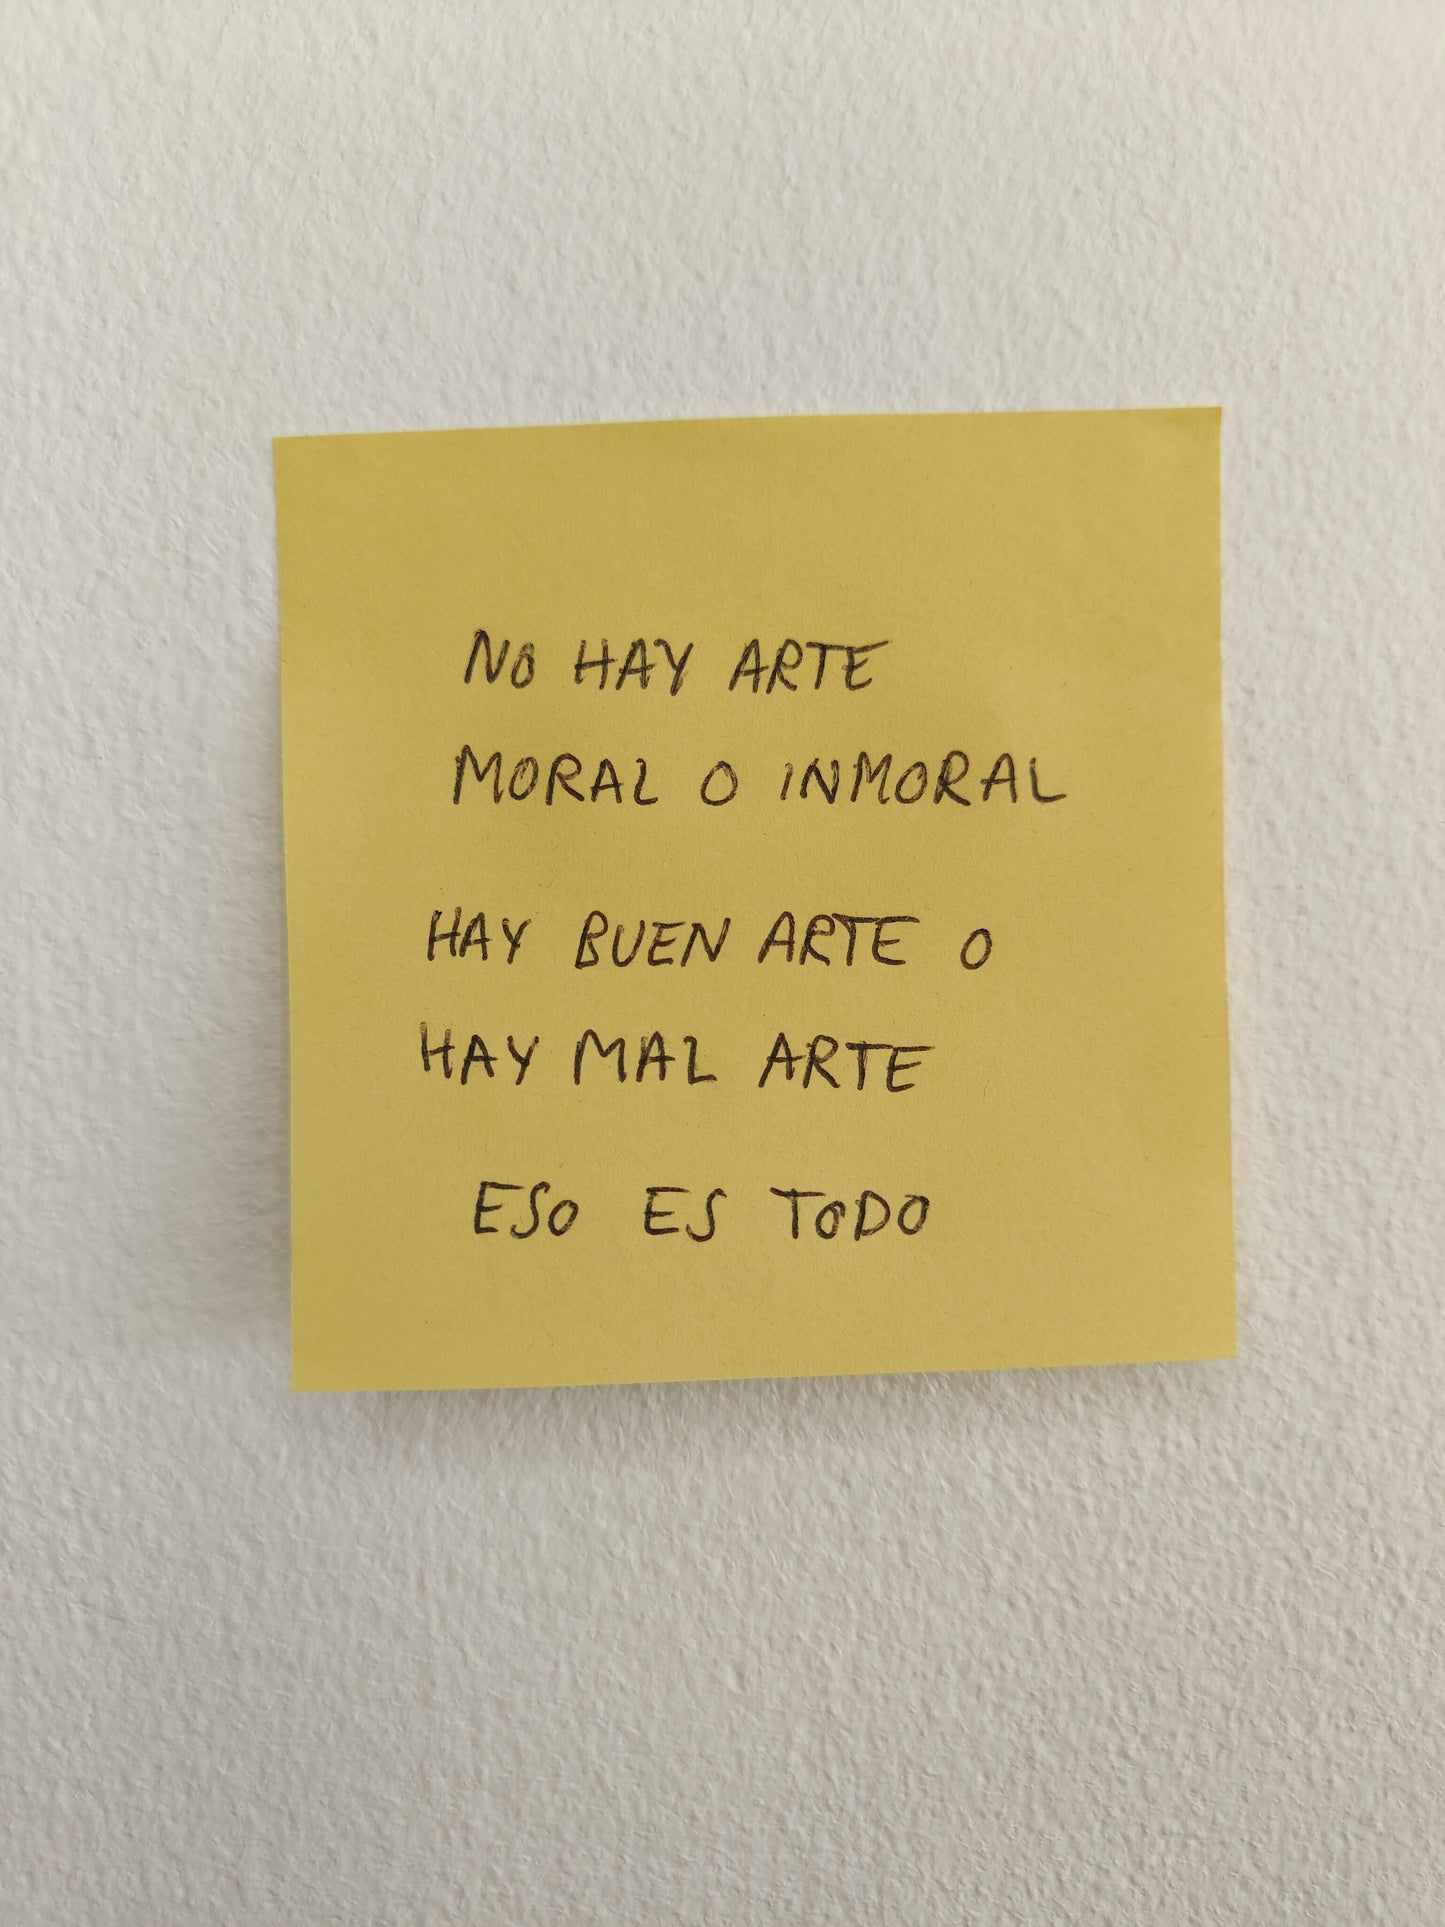 NO HAY ARTE
MORAL O INMORAL
HAY BUEN ARTE O
HAY MAL ARTE
ESO ES TODO